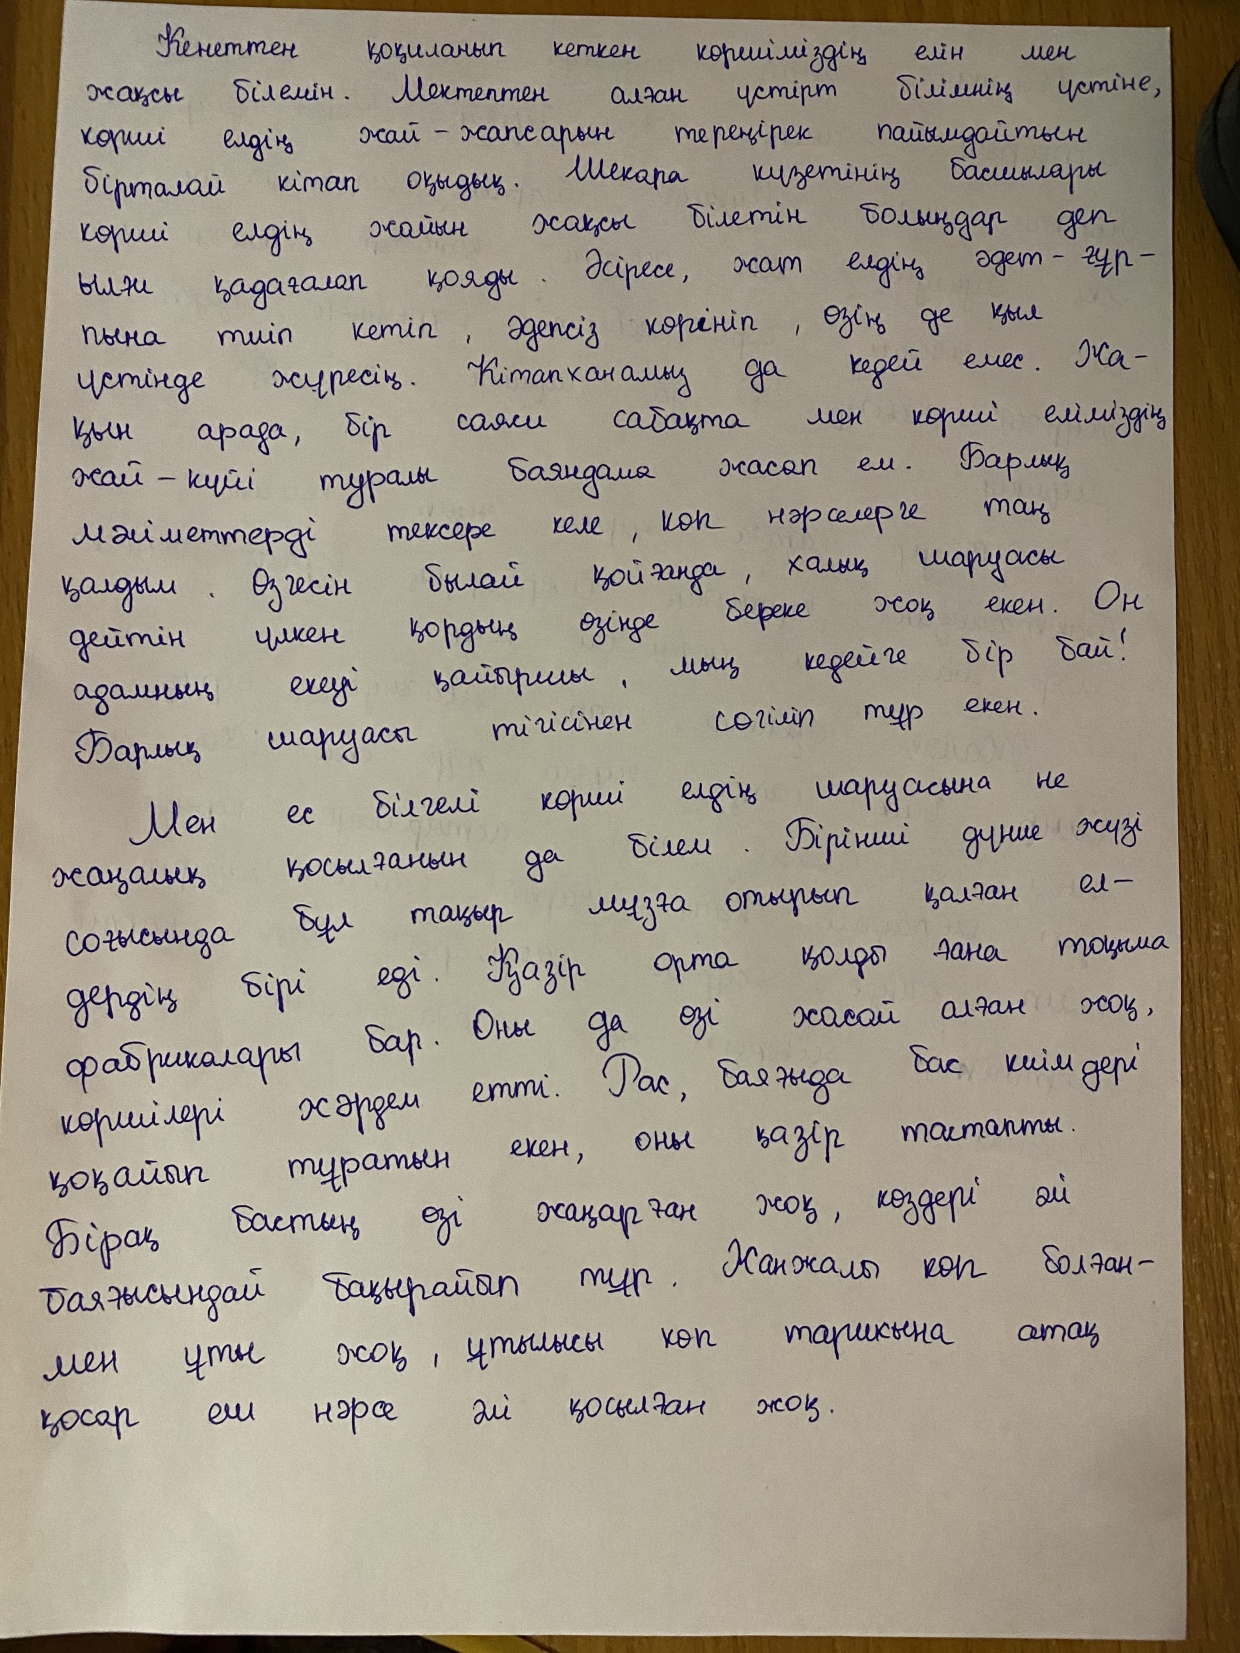 Кенеттен қоқиланып кеткен көршіміздің елін мен
жақсы білемін. Мектептен алған үстірт білімнің үстіне,
көрші елдің жай-жапсарын тереңірек пайымдайтын
бірталай кітап оқыдық. Шекара күзетінің басшылары
көрші елдің жайын жақсы білетін болыңдар деп
ылғи қадағалап қояды. Әсіресе, жат елдің әдет-ғұр-
пына тиіп кетіп, әдепсіз көрініп, өзің де қыл
үстінде жүресің. Кітапханамыз да кедей емес. Жа-
қын арада, бір саяси сабақта мен көрші еліміздің
жай-күйі туралы баяндама жасап ем. Барлық
мәліметтерді тексере келе, көп нәрселерге таң
қалдым. Өзгесін былай қойғанда, халық шаруасы
дейтін үлкен қордың өзінде береке жоқ екен. Он
адамның екеуі қайыршы, мың кедейге бір бай!
Барлық шаруасы тігісінен сөгіліп тұр екен.
Мен ес білгелі көрші елдің шаруасына не
жаңалық қосылғанын да білем. Бірінші дүние жүзі
соғысында бұл тақыр мұзға отырып қалған ел-
дердің бірі еді. Қазір орта қолды ғана тоқыма
фабрикалары бар. Оны да өзі жасай алған жоқ,
көршілері жәрдем етті. Рас, баяғыда бас киімдері
қоқайып тұратын екен, оны қазір тастапты.
Бірақ бастың өзі жаңарған жоқ, көздері әлі
баяғысындай бақырайып тұр. Жанжалы көп болған-
мен ұты жоқ, ұтылысы көп тарихына атақ
қосар еш нәрсе әлі қосылған жоқ.